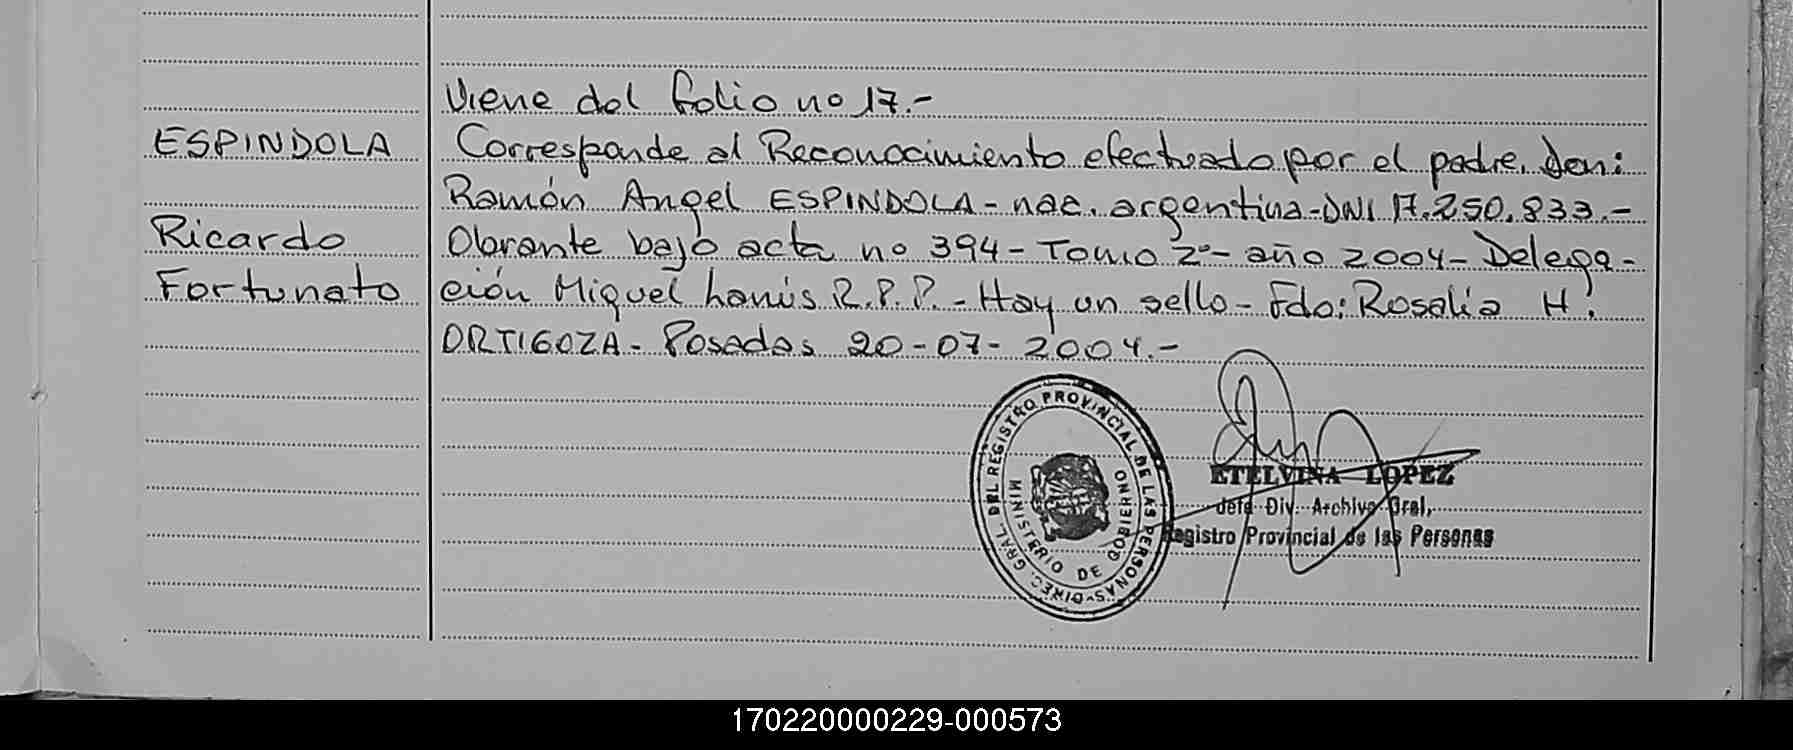 Viene del folio nº 17.-
ESPINDOLA Corresponde al Reconocimiento efectuado por el padre, Don:
Ramón Angel ESPINDOLA - nac. argentina - DNI 17.250.833.-
Ricardo Obrante bajo acta nº 394 - Tomo 2º - año 2004 - Delega-
Fortunato ción Miguel Lanús R.P.P. - Hay un sello - Fdo: Rosalía H.
ORTIGOZA - Posadas 20-07-2004.-
DIREC. GRAL. DEL REGISTRO PROVINCIAL DE LAS PERSONAS-
MINISTERIO DE GOBIERNO
ETELVINA LOPEZ
Jefa Div. Archivo Gral.
Registro Provincial de las Personas
170220000229-000573